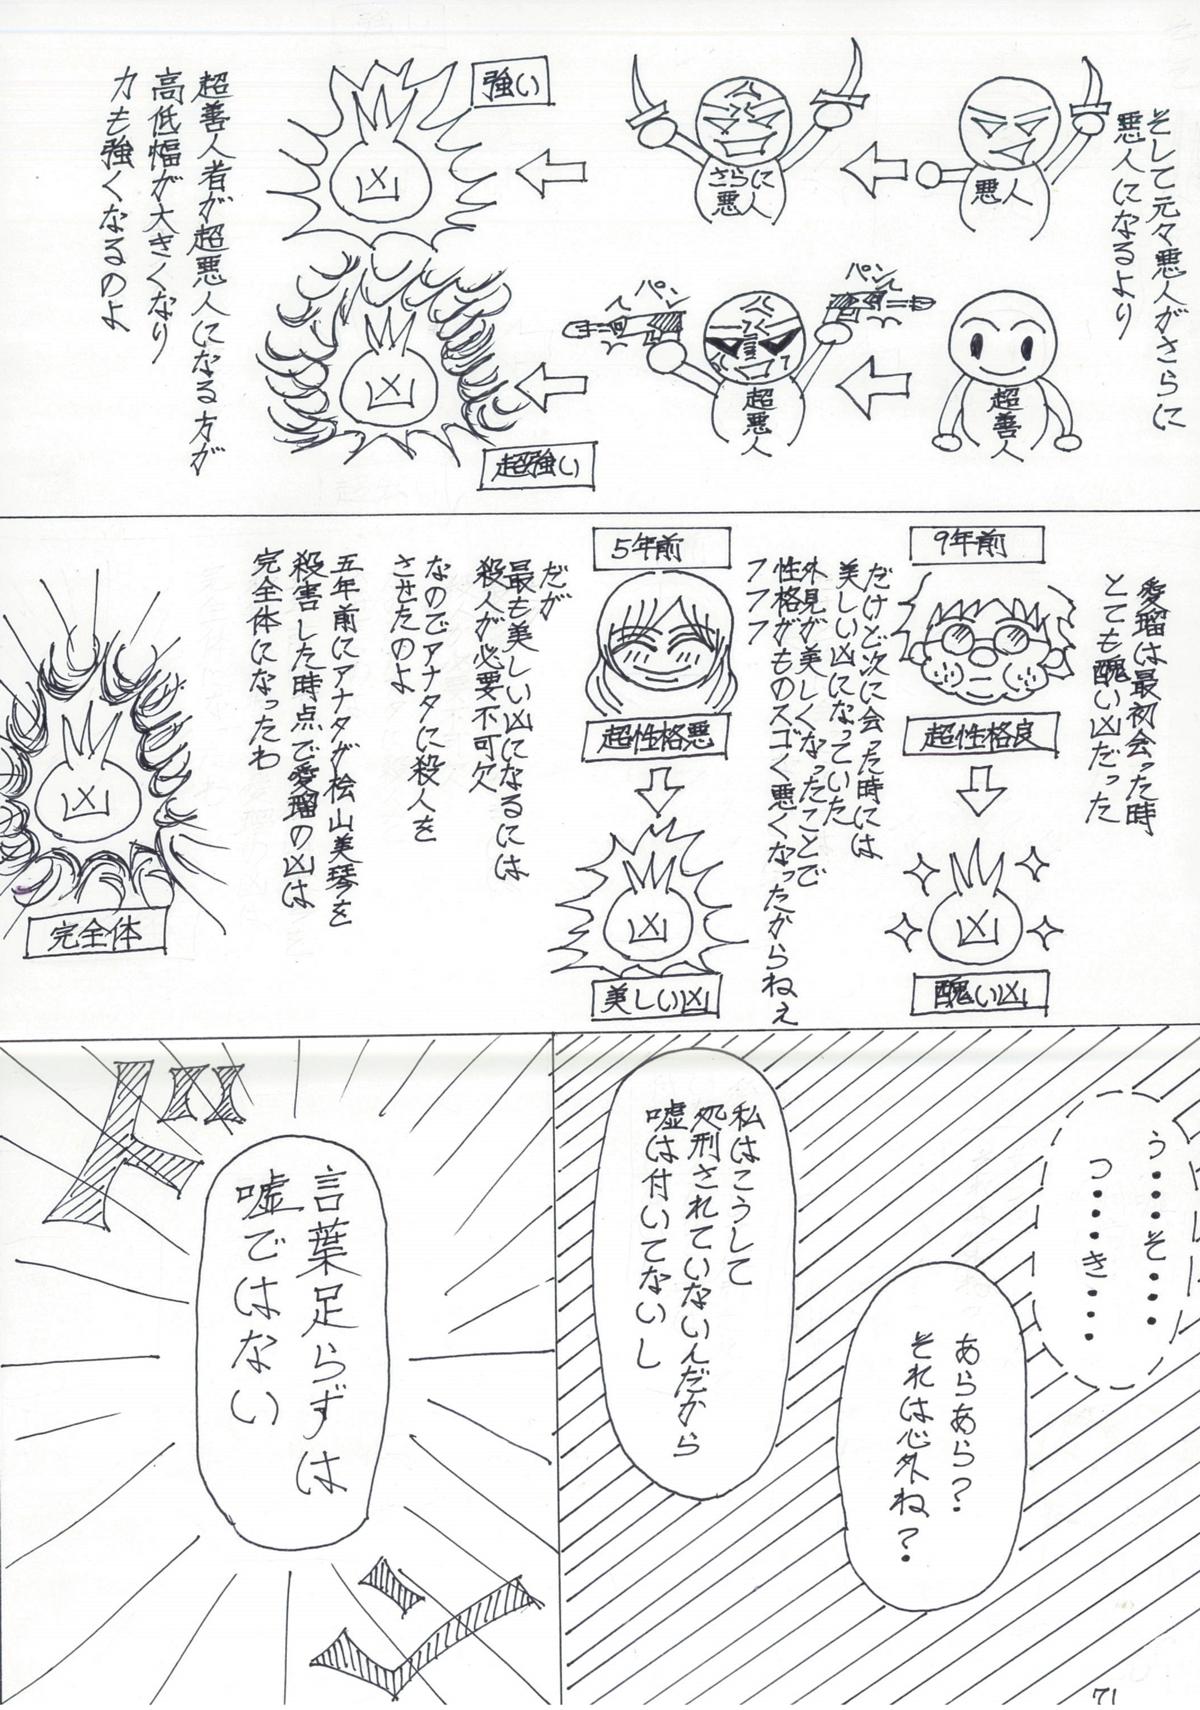 そして元々悪人がさらに
悪人になるより
悪人
さらに
悪人
強い
超善人
パン
パン
超悪人
超強い
超善人者が超悪人になる方が
高低幅が大きくなり
力も強くなるのよ
愛瑠は最初会った時
とても醜い凶だった
9年前
超性格良
凶
醜い凶
だけど次に会った時には
美しい凶になっていた
外見が美しくなったことで
性格がものスゴく悪くなったからねぇ
フフフ
5年前
超性格悪
凶
美しい凶
だが
最も美しい凶になるには
殺人が必要不可欠
なのでアナタに殺人を
させたのよ
五年前にアナタが桧山美琴を
殺害した時点で愛瑠の凶は
完全体になったわ
凶
完全体
う・・・・そ・・・・
つ・・・・き・・・・
あらあら?
それは心外ね?
私はこうして
処刑されていないんだから
嘘は付いてないし
言葉足らずは
嘘ではない
ドン
71